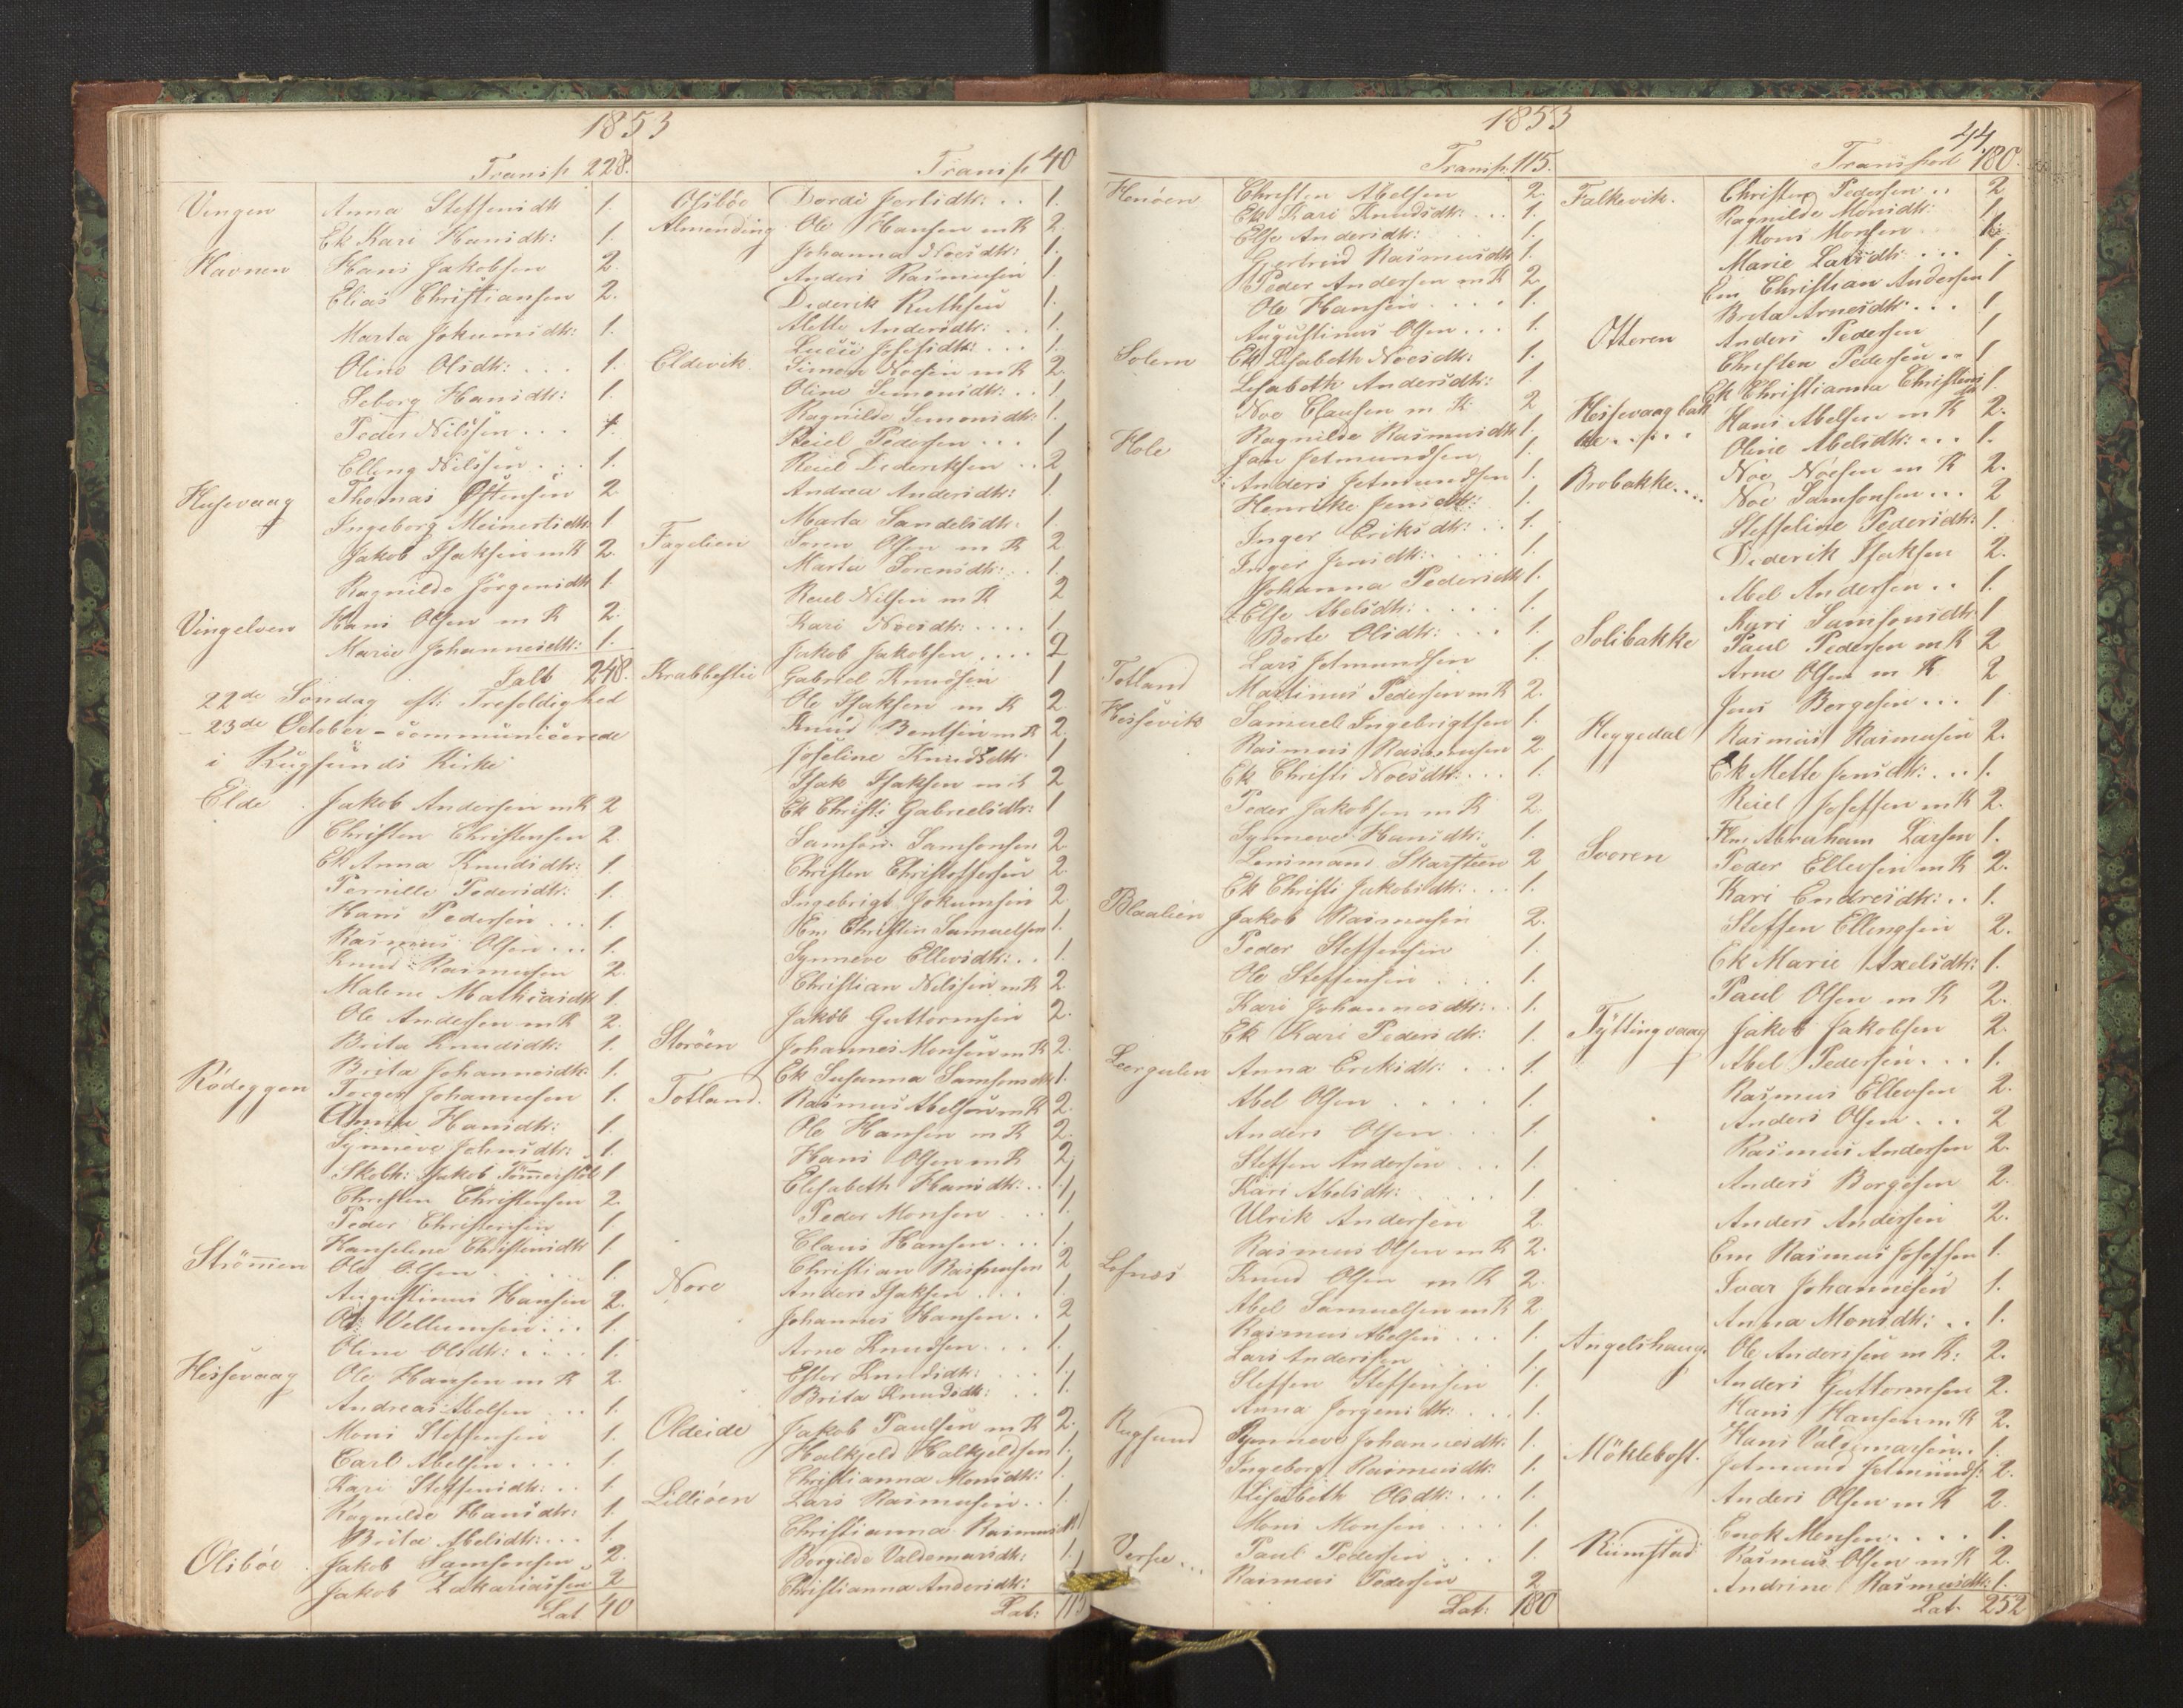 1853
Transp 228.
Vingen Anna Steffensdtr 1.
Ek Kari Hansdtr: 1.
Havnen Hans Jakobsen 2.
Elias Christiansen 2.
Marta Jokumsdtr: 1.
Oline Olsdtr: . . . 1.
Seborg Hansdtr: 1.
Peder Nilssen . . . 1.
Elling Nilssen . . . 1.
Husevaag Thomas Østensen 2
Ingeborg Meinertsdtr 1
Jakob Isaksen m K 2.
Ragnilde Jörgensdtr 1
Vingelven Hans Olsen m K 2.
Marie Johannesdtr: 1.
Salb 248.
22de Søndag eft: Trefoldighed
- 23de October - communicerede
i Rugsunds Kirke
Elde . Jakob Andersen m K 2
Christen Christensen 2.
Ek Anna Knudsdtr: 1.
Pernille Pedersdtr: 1.
Hans Pedersen . . . 1.
Rasmus Olsen . . . 1.
Knud Rasmusen 2.
Malene Mathiasdtr 1.
Ole Andersen m K 2.
Brita Knudsdtr: 1.
Rödeggen Brita Johannesdtr 1.
Torger Johannesen 1.
Anna Hansdtr: 1.
Synneve Johnsdtr: 1.
Skolh: Jakob 1
Christen Christensen 2.
Peder Christensen 1.
Hanseline Christensdtr 1
Strömen Ole Olsen . . . 1.
Augustinus Hansen 2.
Ole Vellumsen . . . 1.
Oline Olsdtr: . . . . 1.
Hessevaag Ole Hansen m K 2.
Andreas Abelsen . . . 1.
Mons Steffensen 1.
Carl Abelsen . . . . 1.
Kari Steffensdtr: . . 1.
Ragnilde Hansdtr: 1.
Brita Abelsdtr: . . . 1.
Olsböe . Jakob Samsonsen 2.
Jakob Zakariassen 2
Lat 40
Transp 40
Olsböe Dordi Jertsdtr: . . 1.
Almending Ole Hansen m K 2.
Johanna Noesdtr: 1.
Anders Rasmusen 1.
Dederik Ruthsen 1.
Alette Andersdtr: . . 1.
Lucie Josefsdtr: . . . 1.
Eldevik Simon Noesen m K 2
Oline Simonsdtr: . . 1.
Ragnilde Simonsdtr: 1.
Reiel Pedersen . . . 1
Reiel Dederiksen . . 2
Andrea Andersdtr: 1.
Marta Sandelsdtr: 1.
Fagelien Soren Olsen m K 2
Marta Sorensdtr: . 1.
Reiel Nilsen m K 2
Kari Noesdtr: . . . . 1.
Jakob Jakobsen . . . 2
Krabbestie Gabriel Knudsen 1
Ole Isaksen m K 2.
Knud Bentsen m K 2.
Joseline Knudsdtr 1
Isak Isaksen m K 2
Ek Christi: Gabrielsdtr: 1
Samson Samsonsen 2
Christen Christoffersen 2
Ingebrigt Jokumsen 2
Em Christen Samuelsen 1.
Synneve Ellevsdtr: . . 1.
Christian Nilssen m K 2
Jakob Guttormsen 2.
Storöen Johannes Monsen m K 2.
Ek Susanna Samsonsdtr 1.
Totland. Rasmus Abelsen m K 2.
Ole Hansen m K 2.
Hans Olsen m K 2
Elisabeth Hansdtr: . . 1.
Peder Monsen . . . 1.
Claus Hansen . . . 1.
Christian Rasmusen 2
Nore Anders Isaksen . . . 1.
Johannes Hansen . . 2
Arne Knudsen . . . 1.
Ester Knudsdtr: . . . 1.
Brita Knudsdtr: . . 1.
Oldeide Jakob Paulsen m K 2.
Halkjeld Halkjeldsen 1.
Christianna Monsdtr: 1.
Lilliöen Lars Rasmusen . . 1.
Christianna Rasmusdtr 1
Borgilde Valdemarsdtr: 1.
Christianna Andersdtr: 1.
Lat: 115
1853
44.
Transp. 115.
Henöen Christen Abelsen 2.
Ek Kari Knudsdtr: . . . 1.
Else Andersdtr: 1.
Gertrud Rasmusdtr 1.
Peder Andersen m K 2.
Ole Hansen . . . . 1.
Augustinus Olsen . . . 1.
Solem Ek Lisabeth Noesdtr: 1.
Lisabeth Andersdtr: 1.
Noe Clausen m K 2
Ragnilde Rasmusdtr 1.
Hole Jan Jetmundsen 1.
Anders Jetmundsen 1.
Henrikke Jensdtr: 1.
Inger Eriksdtr: . . 1.
Inger Jensdtr: . . . . 1.
Johanna Pedersdtr 1.
Else Abelsdtr: . . . . 1.
Berte Olsdtr: . . . 1.
Lars Jetmundsen 1.
Totland Martinus Pedersen m K 2.
Hessevik Samuel Ingebrigtsen 1.
Rasmus Rasmusen 2
Ek Christi Noesdtr: . . . 1.
Peder Jakobsen m K 2.
Synneve Hansdtr: 1.
Lensmand Skarsteen 2
Ek Christi Jakobsdtr: . . . 1.
Blaalien Jakob Rasmusen 2.
Peder Steffensen 1.
Ole Steffensen . . . 1.
Kari Johannesdtr: . . 1.
Ek Kari Pedersdtr: 1.
Leergulen Anna Eriksdtr: . . . 1.
Abel Olsen . . . . . 1.
Anders Olsen . . . 1.
Steffen Andersen . . . 1.
Kari Abelsdtr: . . . . 1.
Ulrik Andersen 2.
Rasmus Olsen m K 2.
Lofnæs Knud Olsen m K 2.
Abel Samuelsen m K 2
Rasmus Abelsen . . . 1.
Lars Anderssen . . . 1.
Steffen Steffensen 1.
Anna Jorgensdtr: . . . 1.
Rugsund Synneve Johannesdtr: 1.
Ingeborg Rasmusdtr: 1.
Lisabeth Olsdtr: . . . 1.
Mons Monsen . . . . 1.
Verpe . . . Paul Pedersen . . . 1.
Rasmus Pedersen 2
Lat: 180
Transport 180.
Falkevik. Christen Pedersen . . 2
Ragnilde Monsdtr: 1.
Mons Monsen 1.
Marie Larsdtr: . . . 1.
Em Christian Andersen 1
Brita Arnesdtr: . . . 1.
Otteren Anders Pedersen 1
Christen Pedersen . . 1
Ek Christianna Christensd 1.
Hessevaagbak Hans Abelsen m K 2.
ke . . . . . Oline Abelsdtr: . . . 1.
Brobakke . . . . Noe Noesen m K 2.
Noe Samsonsen . . . 2
Steffeline Pedersdtr: 1.
Dederik Isaksen 2.
Abel Andersen . . 1.
Kari Samsonsdtr: 1
Solibakke Paul Pedersen m K 2
Arne Olsen m K 2
Jens Borgesen . . . 1
Heggedal Rasmus Rasmusen 2.
Ek Mette Jensdtr: . . . 1.
Reiel Josefsen m K 2.
Svoren Em Abraham Larsen 1.
Peder Ellevsen m K 2.
Kari Endresdtr: . . 1.
Steffen Ellingsen 2.
Ek Marie Axelsdtr: 1.
Paul Olsen m K 2.
Tyttingvaag Jakob Jakobsen 2.
Abel Pedersen . . . 1.
Rasmus Ellevsen 2.
Anders Olsen . . . 2
Rasmus Andersen 2.
Anders Borgesen 2.
Anders Andersen 2.
Em Rasmus Josefsen 1.
Ivar Johannesen 1.
Anna Monsdtr: . . 1.
Angelshaug. Ole Anderssen m K: 2.
Anders Guttormsen 2.
Hans Hansen m K 2.
Möklebost. Hans Valdemarsen . . 1.
Jetmund Jetmunds: 2.
Anders Olsen m K 2.
Enok Monsen . . . . 1.
Rimstad Rasmus Olsen m K 2.
Andrine Rasmusdtr: 1.
Lat. 252